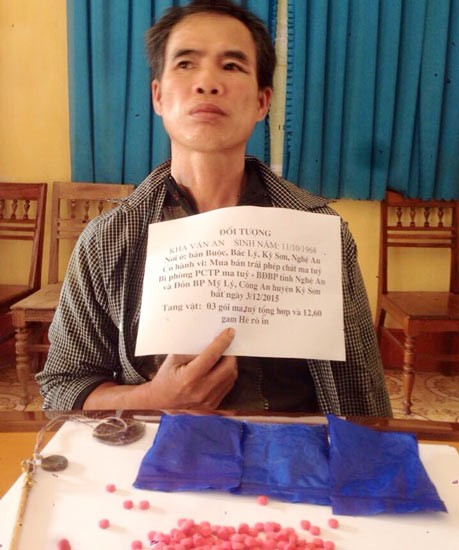 ĐỐI TƯỢNG
KHA VĂN AN SINH NĂM: 11/10/1964
Nơi ở: bản Buộc, Bắc Lý, Kỳ Sơn, Nghệ An
Có hành vi: Mua bán trái phép chất ma tuý
Bị phòng PCTP ma tuý - BĐBP tỉnh Nghệ An
và Đồn BP Mỹ Lý, Công An huyện Kỳ Sơn
bắt ngày 3/12/2015
Tang vật: 03 gói ma tuý tổng hợp và 12,60
gam Hê rô in